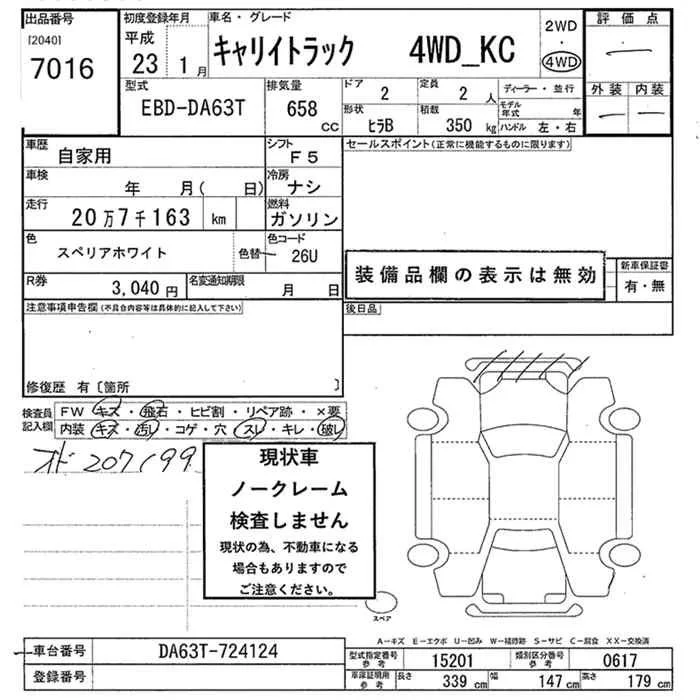 出品番号
[2040]
7016
初度登録年月
平成
23 1月
車名・グレード
キャリイトラック 4WD_KC
2WD
・
4WD
評価点
—
外装 内装
— —
型式
EBD-DA63T
排気量
658
cc
ドア
2
定員
2 人
形状
ﾋﾗB
積載
350 kg
ディーラー・並行
モデル年式 年
ハンドル 左・右
車歴
自家用
シフト
F5
車検
年 月( 日)
冷房
ナシ
走行
20万7千163 km
燃料
ガソリン
色
スペリアホワイト
色替
色コード
26U
R券
3,040 円
名変通知期限
月 日
セールスポイント(正常に機能するものに限ります)
装備品欄の表示は無効
新車保証書
有・無
注意事項申告欄(不具合内容等は具体的に記入して下さい)
後日品
修復歴 有〔箇所 〕
検査員記入欄
FW キズ・飛石・ヒビ割・リペア跡・×要
内装 キズ・汚し・コゲ・穴・スレ・キレ・破レ
オド 207199
現状車
ノークレーム
検査しません
現状の為、不動車になる
場合もありますので
ご注意ください。
スペア
A-キズ E-エクボ U-凹み W-補修跡 S-サビ C-腐食 XX-交換済
車台番号
DA63T-724124
登録番号
型式指定番号
参考
15201
類別区分番号
参考
0617
車庫証明用
参考
長さ
339 cm
幅
147 cm
高さ
179 cm